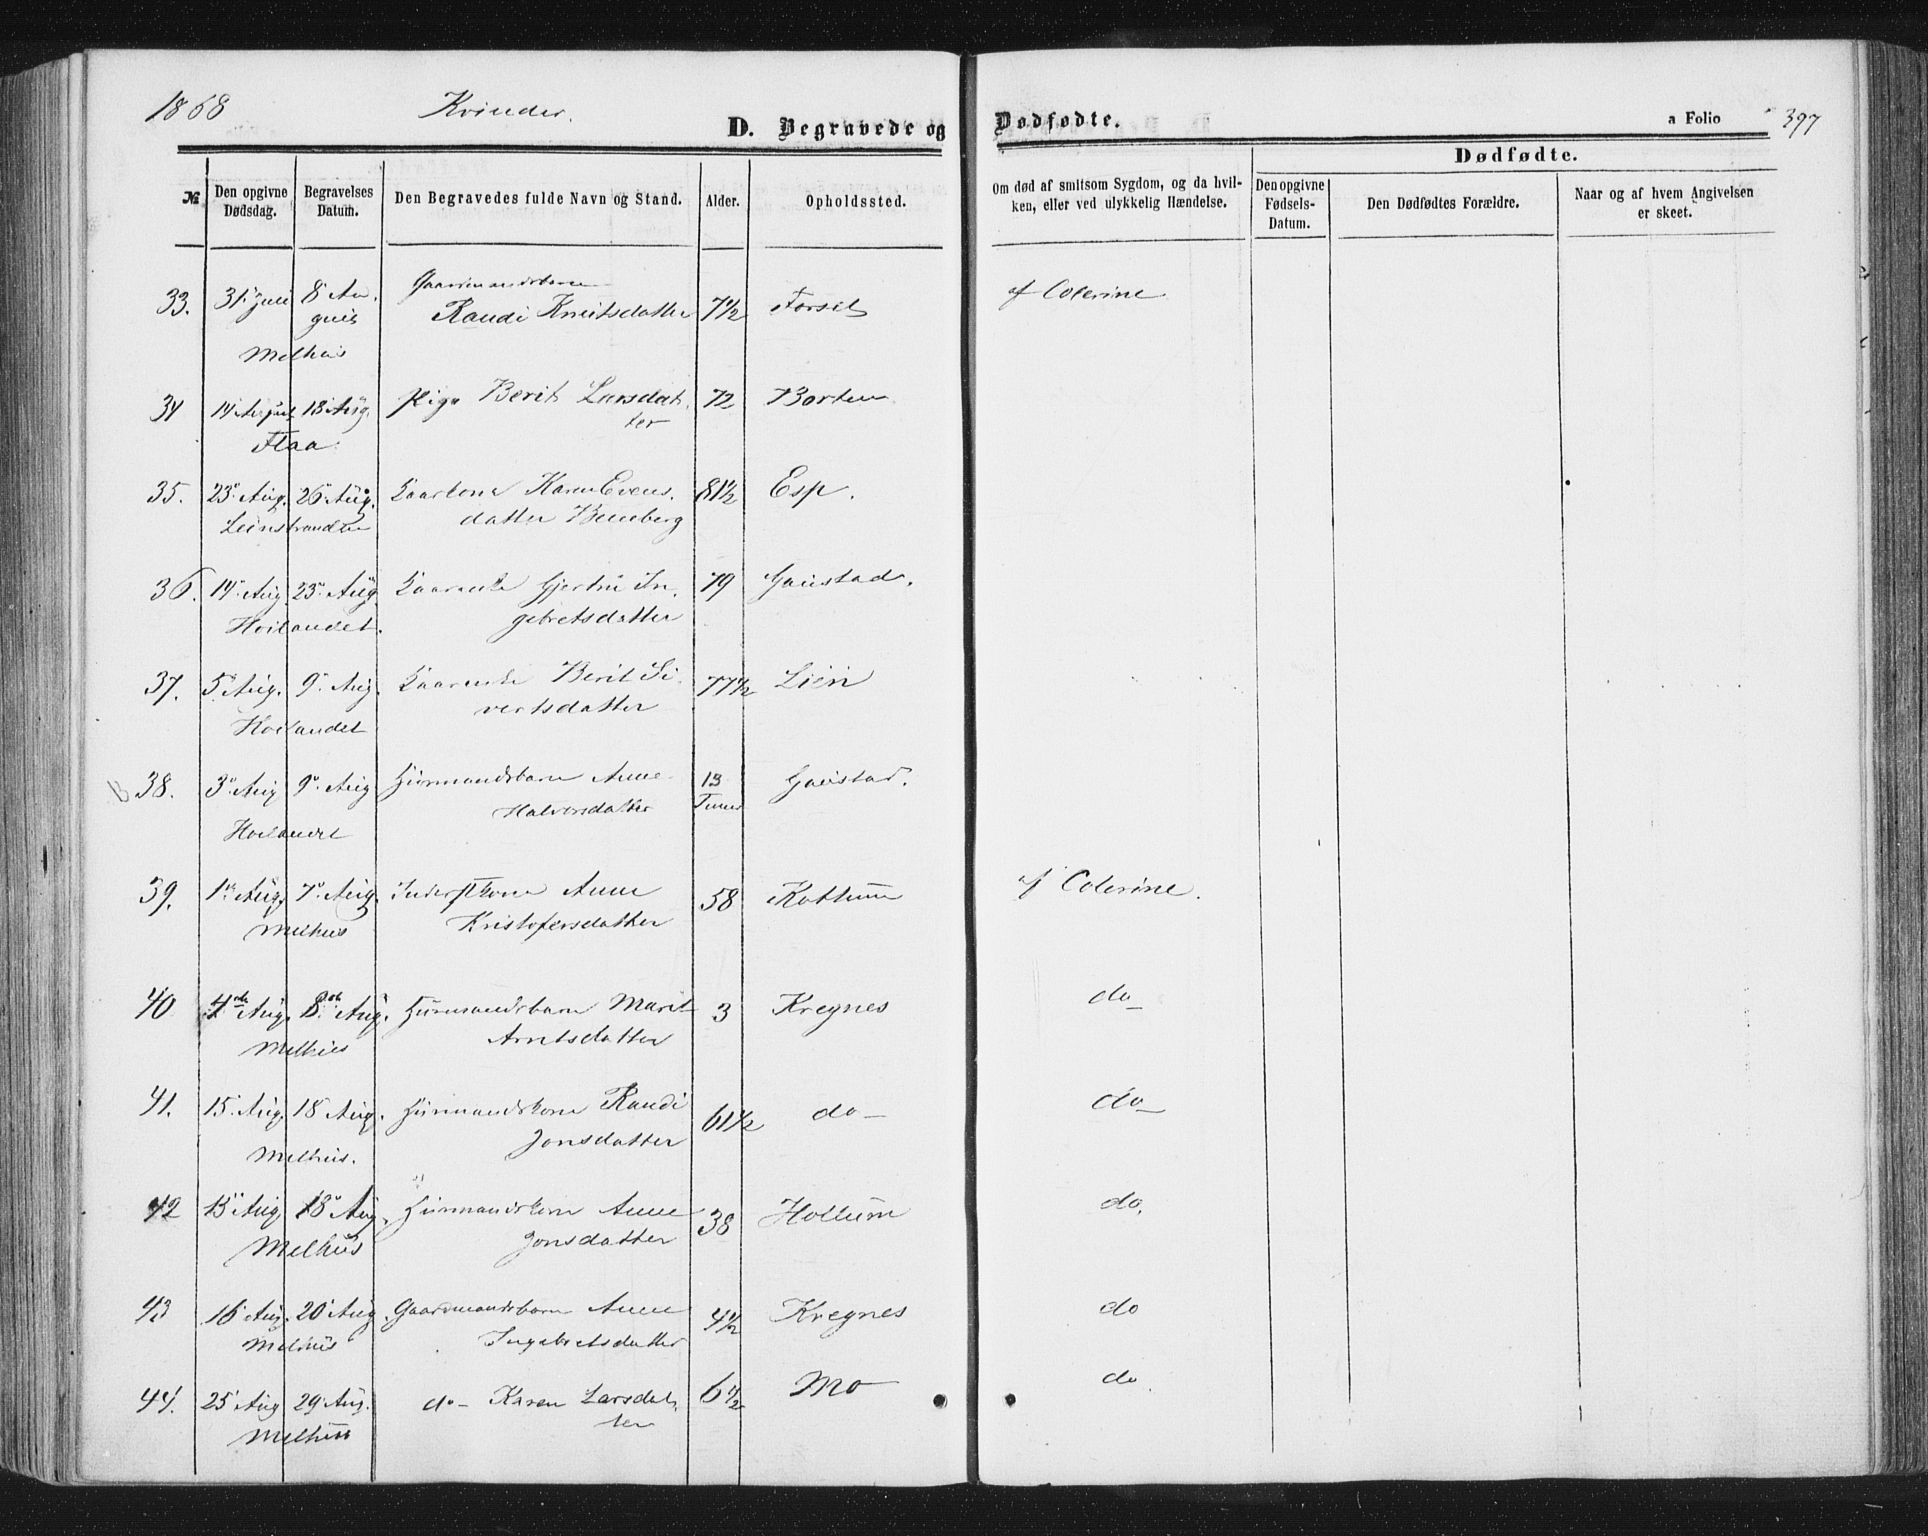 1868 Kvinder. D. Begravede og Dødfødte. a Folio 397
Dødfødte.
№ Den opgivne Dødsdag. Begravelses Datum. Den Begravedes fulde Navn og Stand. Alder. Opholdssted. Om død af smitsom Sygdom, og da hvilken, eller ved ulykkelig Hændelse. Den opgivne Fødsels-Datum. Den Dødfødtes Forældre. Naar og af hvem Angivelsen er skeet.
33. 31 Juli 8 Au- Gaardmandsbarn
gust Randi Knutsdatter 7½ Forset af Colerine
Melhus
34 14 August 18 Aug. Pige Berit Larsdat- 72 Borten
ter
Flaa.
35. 23 Aug. 26 Aug. Kaarkone Karen Evens- 81½ Esp.
Leinstranden datter Beneberg
36. 14 Aug. 23 Aug. Gjertru In- 79 Gaustad.
Hoilandet. gebretsdatter
37. 5 Aug. 9 Aug. Berit Si- 77½ Lien
Hoilandet vertsdatter
38. 3 Aug 9 Aug Husmandsbarn Anne 13 Gaustad.
Halvorsdatter Timer
Hoilandet
39. 1 Aug. 7 Aug. Inderstkone Anne 58 Kottum af Colerine.
Melhus Kristofersdatter
40 4de Aug. 8de Aug. Husmandsbarn Marit 3 Kregnes do
Melhus Arntsdatter
41. 15 Aug. 18 Aug. Husmandskone Randi 61½ do do
Melhus. Jonsdatter
42 15 Aug 18 Aug. Husmandskone Anne 38 Hollum do.
Melhus Jonsdatter
43 16 Aug. 20 Aug Gaardmandsbarn Anne 4½ Kregnes do
Melhus Ingebretsdatter
44. 25 Aug 29 Aug. do Karen Larsdat- 6½ Mo do.
ter
Melhus